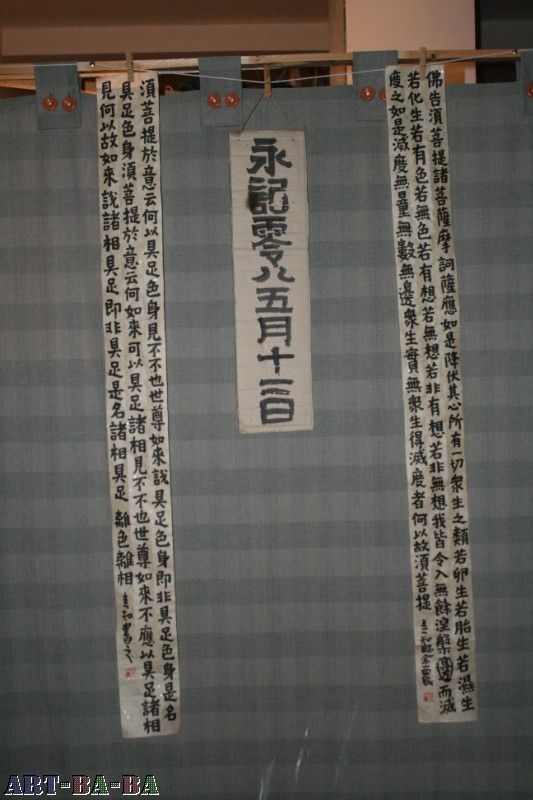 佛告須菩提諸菩薩摩訶薩應如是降伏其心所有一切衆生之類若卵生若胎生若濕生
若化生若有色若無色若有想若無想若非有想若非無想我皆令入無餘涅槃邊而滅
度之如是滅度無量無數無邊衆生實無衆生得滅度者何以故須菩提
永記零八五月十二日
須菩提於意云何以具足色身見不不也世尊如來說具足色身即非具足色身是名
具足色身須菩提於意云何如來可以具足諸相見不不也世尊如來不應以具足諸相
見何以故如來說諸相具足即非具足是名諸相具足 離色離相
ART-BA-BA